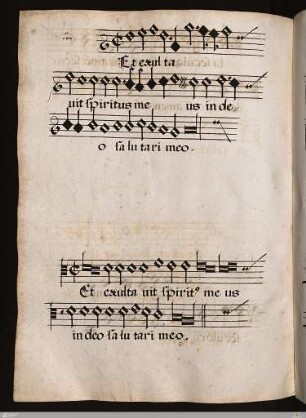 Et exul ta
uit spiritus me us in de
o sa lu tari meo.
Et exulta uit spiritꝰ me us
in deo sa lu tari meo.